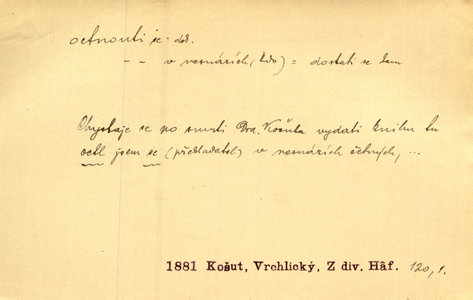 octnouti se dok.
– – v nesnázích (kdo) = dostati se tam
Chystaje se po smrti Dra. Košuta vydati knihu tu
octl jsem se (překladatel) v nesnázích četných, ...
1881 Košut, Vrchlický, Z div. Háf. 120,1.